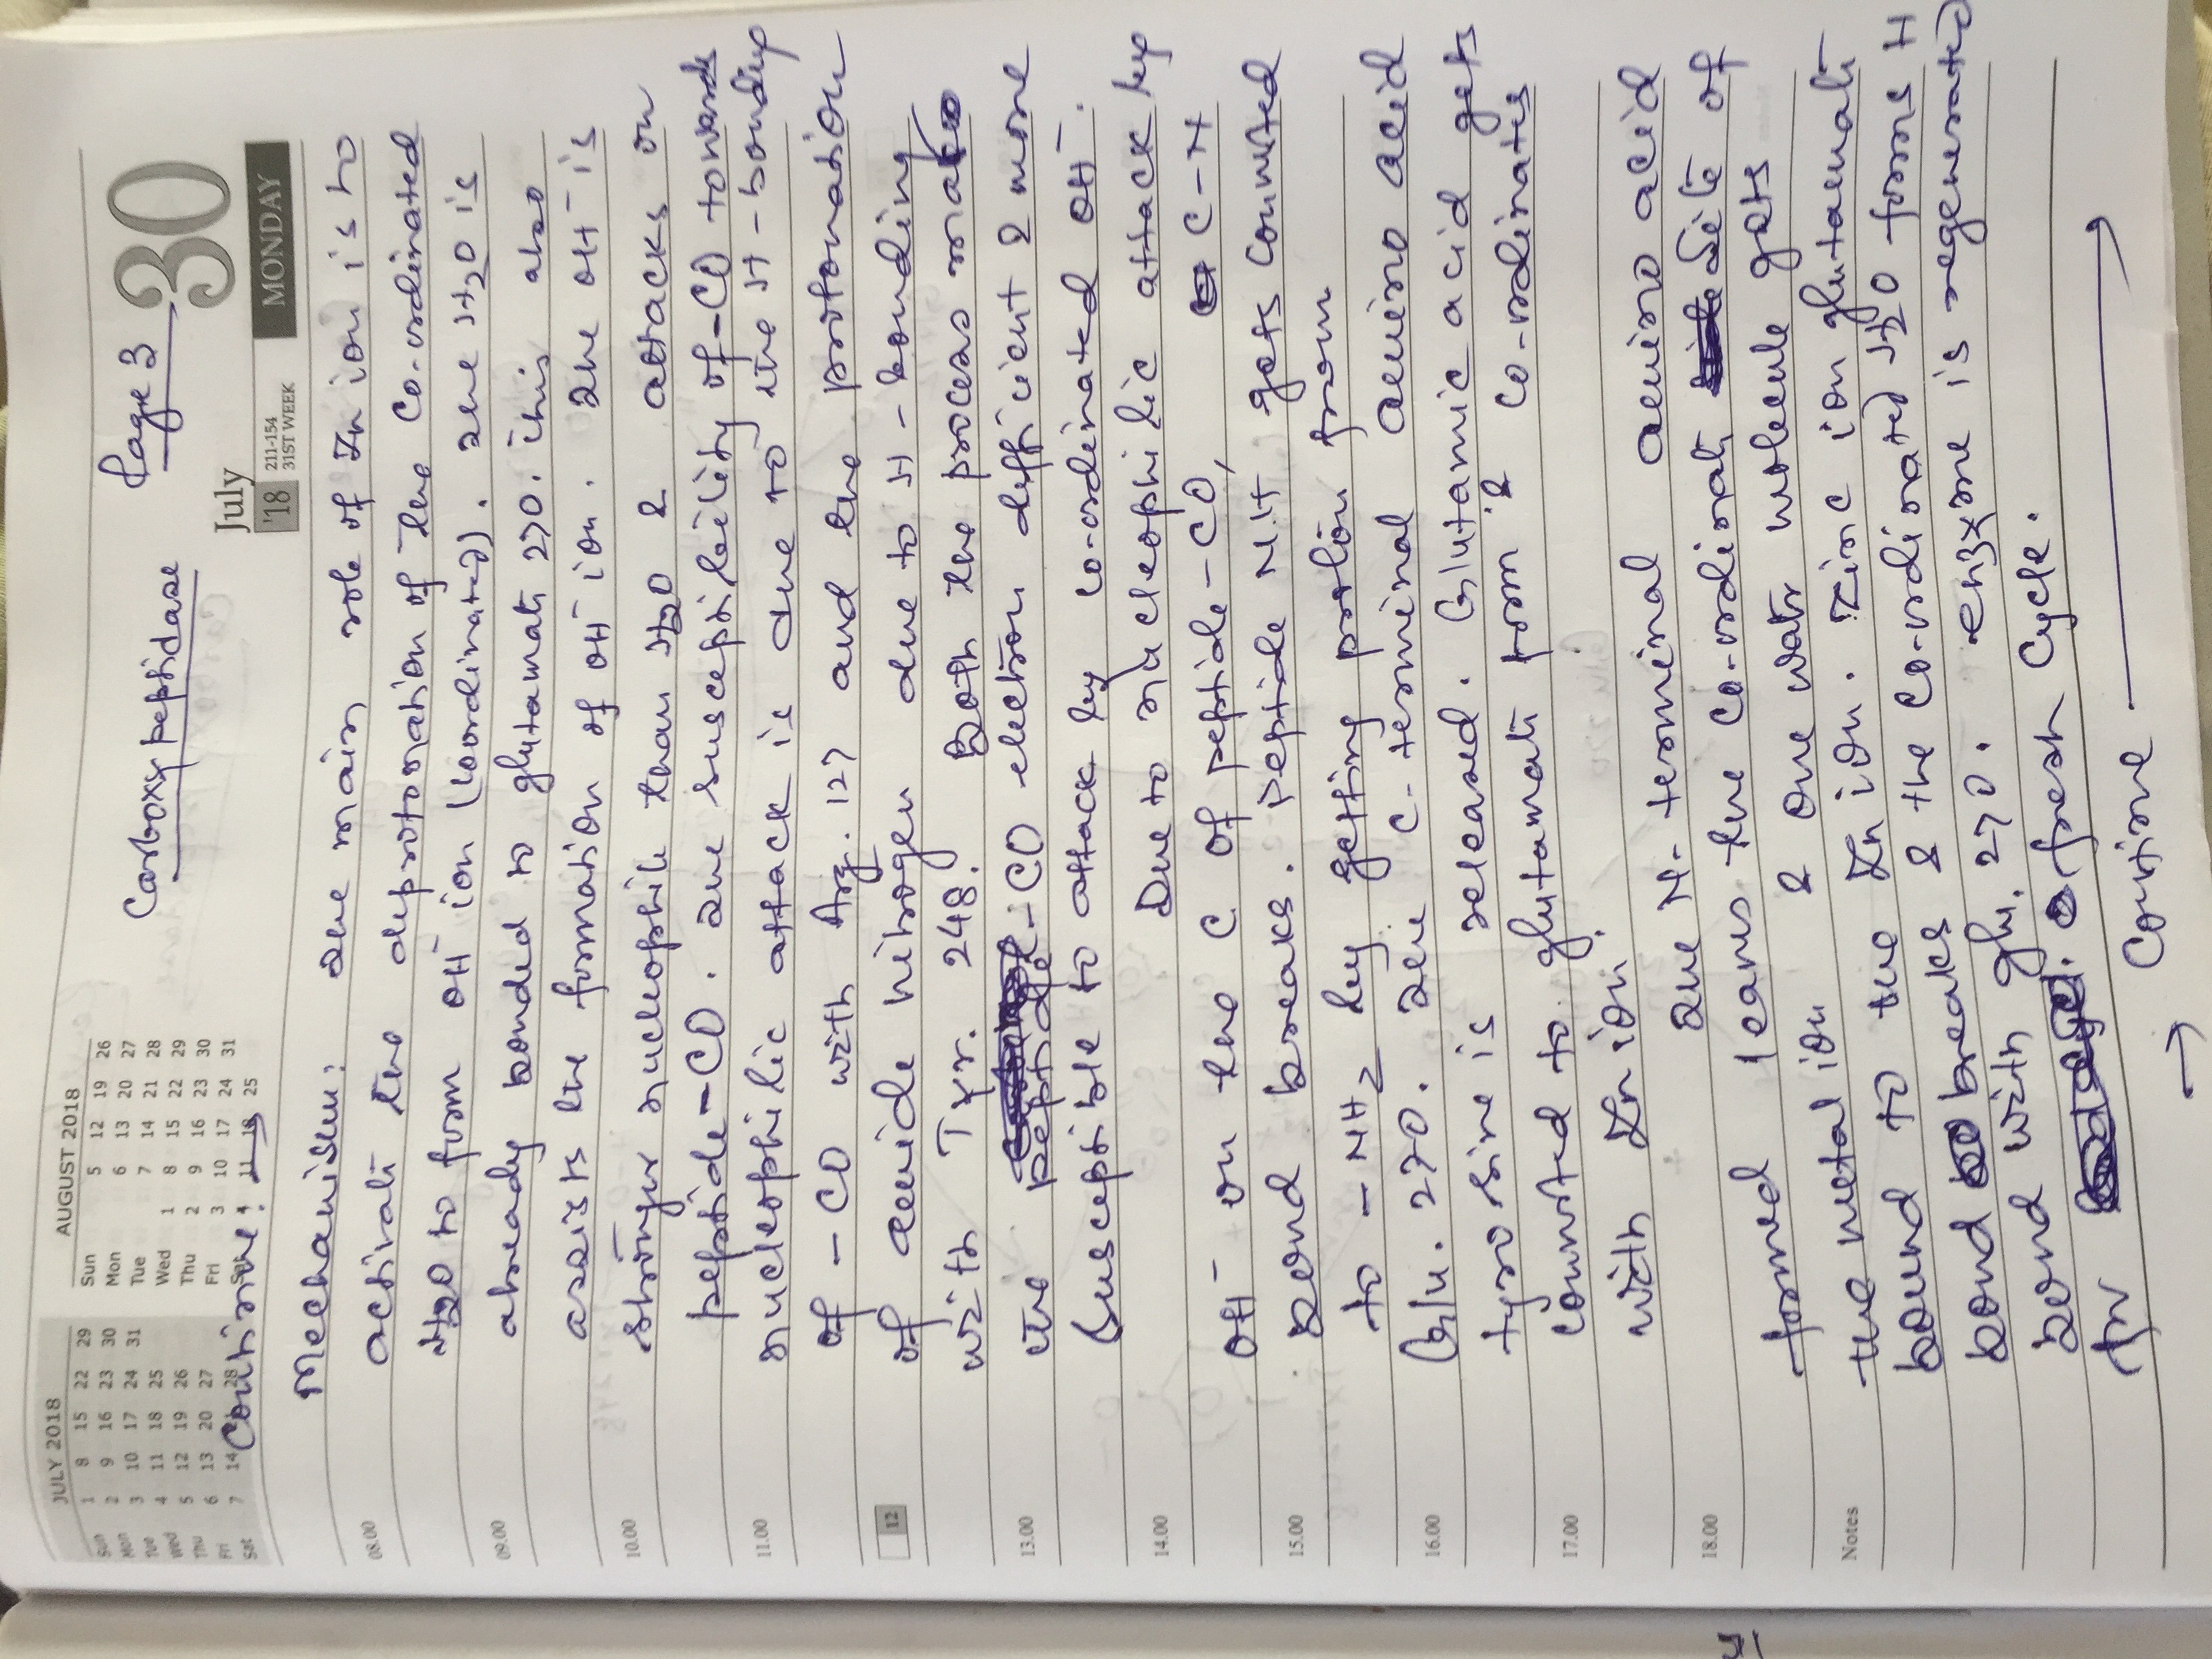 Page 3
Carboxypeptidase
30
July
MONDAY
'18
211-154
31ST WEEK
JULY 2018
Sun 1 8 15 22 29
Mon 2 9 16 23 30
Tue 3 10 17 24 31
Wed 4 11 18 25
Thu 5 12 19 26
Fri 6 13 20 27
Sat 7 14 28
AUGUST 2018
Sun 5 12 19 26
Mon 6 13 20 27
Tue 7 14 21 28
Wed 1 8 15 22 29
Thu 2 9 16 23 30
Fri 3 10 17 24 31
Sat 4 11 18 25
Continue:
Mechanism: The main role of Zn ion is to
activate the deprotonation of the co-ordinated
H2O to form OH- ion (coordinated). The H2O is
already bonded to glutamate 270. This also
assists the formation of OH- ion. The OH- is
stronger nucleophile than H2O & attacks on
peptide-CO. The susceptibility of -CO towards
nucleophilic attack is due to the H-bonding
of -CO with Arg. 127 and the protonation
of amide nitrogen due to H-bonding
with Tyr. 248. Both the process make
the peptide -CO electron difficient & more
susceptible to attack by co-ordinated OH-.
Due to nucleophilic attack by
OH- on the C of peptide-CO, C-N
bond breaks. Peptide NH gets converted
to -NH2 by getting proton from
Glu. 270. The C-terminal amino acid
tyrosine is released. Glutamic acid gets
converted to glutamate form & co-ordinates
with Zn ion.
The N-terminal amino acid
formed leaves the co-ordinate site of
the metal ion & one water molecule gets
bound to the Zn ion. Zinc ion glutamate
bond breaks & the co-ordinated H2O forms H
bond with glu. 270. enzyme is regenerated
for fresh cycle.
→ Continue
08.00
09.00
10.00
11.00
12
13.00
14.00
15.00
16.00
17.00
18.00
Notes